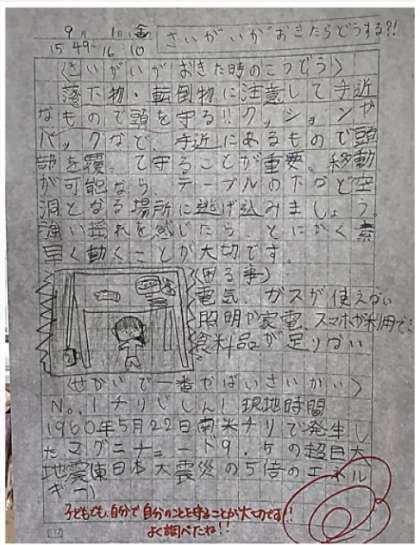 9月 1日 金
15:49~16:10
さいがいがおきたらどうする?!
〈さいがいがおきた時のこうどう〉
落下物・転倒物に注意して手近
なもので頭を守る!!クッションや
バックなど、手近にあるもので頭
部を覆って守ることが重要。移動
が可能なら、テーブルの下など空
洞となる場所に逃げ込みましょう。
強い揺れを感じたら、とにかく素
早く動くことが大切です。
〈困る事〉
電気、ガスが使えない
照明か家電、スマホが利用でき
食料品が足りない
〈せかいで一番やばいさいがい〉
No.1チリじしん!現地時間
1960年5月22日南米チリで発生し
たマグニチュード9.5の超巨大
地震(東日本大震災の5倍のエネル
ギー)
子どもでも、自分で自分のことを守ることが大切です!!
よく調べたね!!